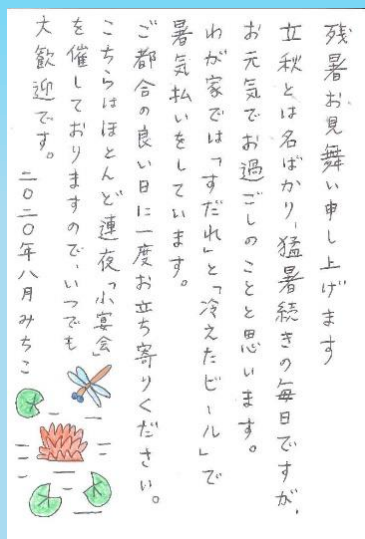 残暑お見舞い申し上げます
立秋とは名ばかり、猛暑続きの毎日ですが、
お元気でお過ごしのことと思います。
わが家では「すだれ」と「冷えたビール」で
暑気払いをしています。
ご都合の良い日に一度お立ち寄りください。
こちらはほとんど連夜「小宴会」
を催しておりますので、いつでも
大歓迎です。
二〇二〇年八月みちこ